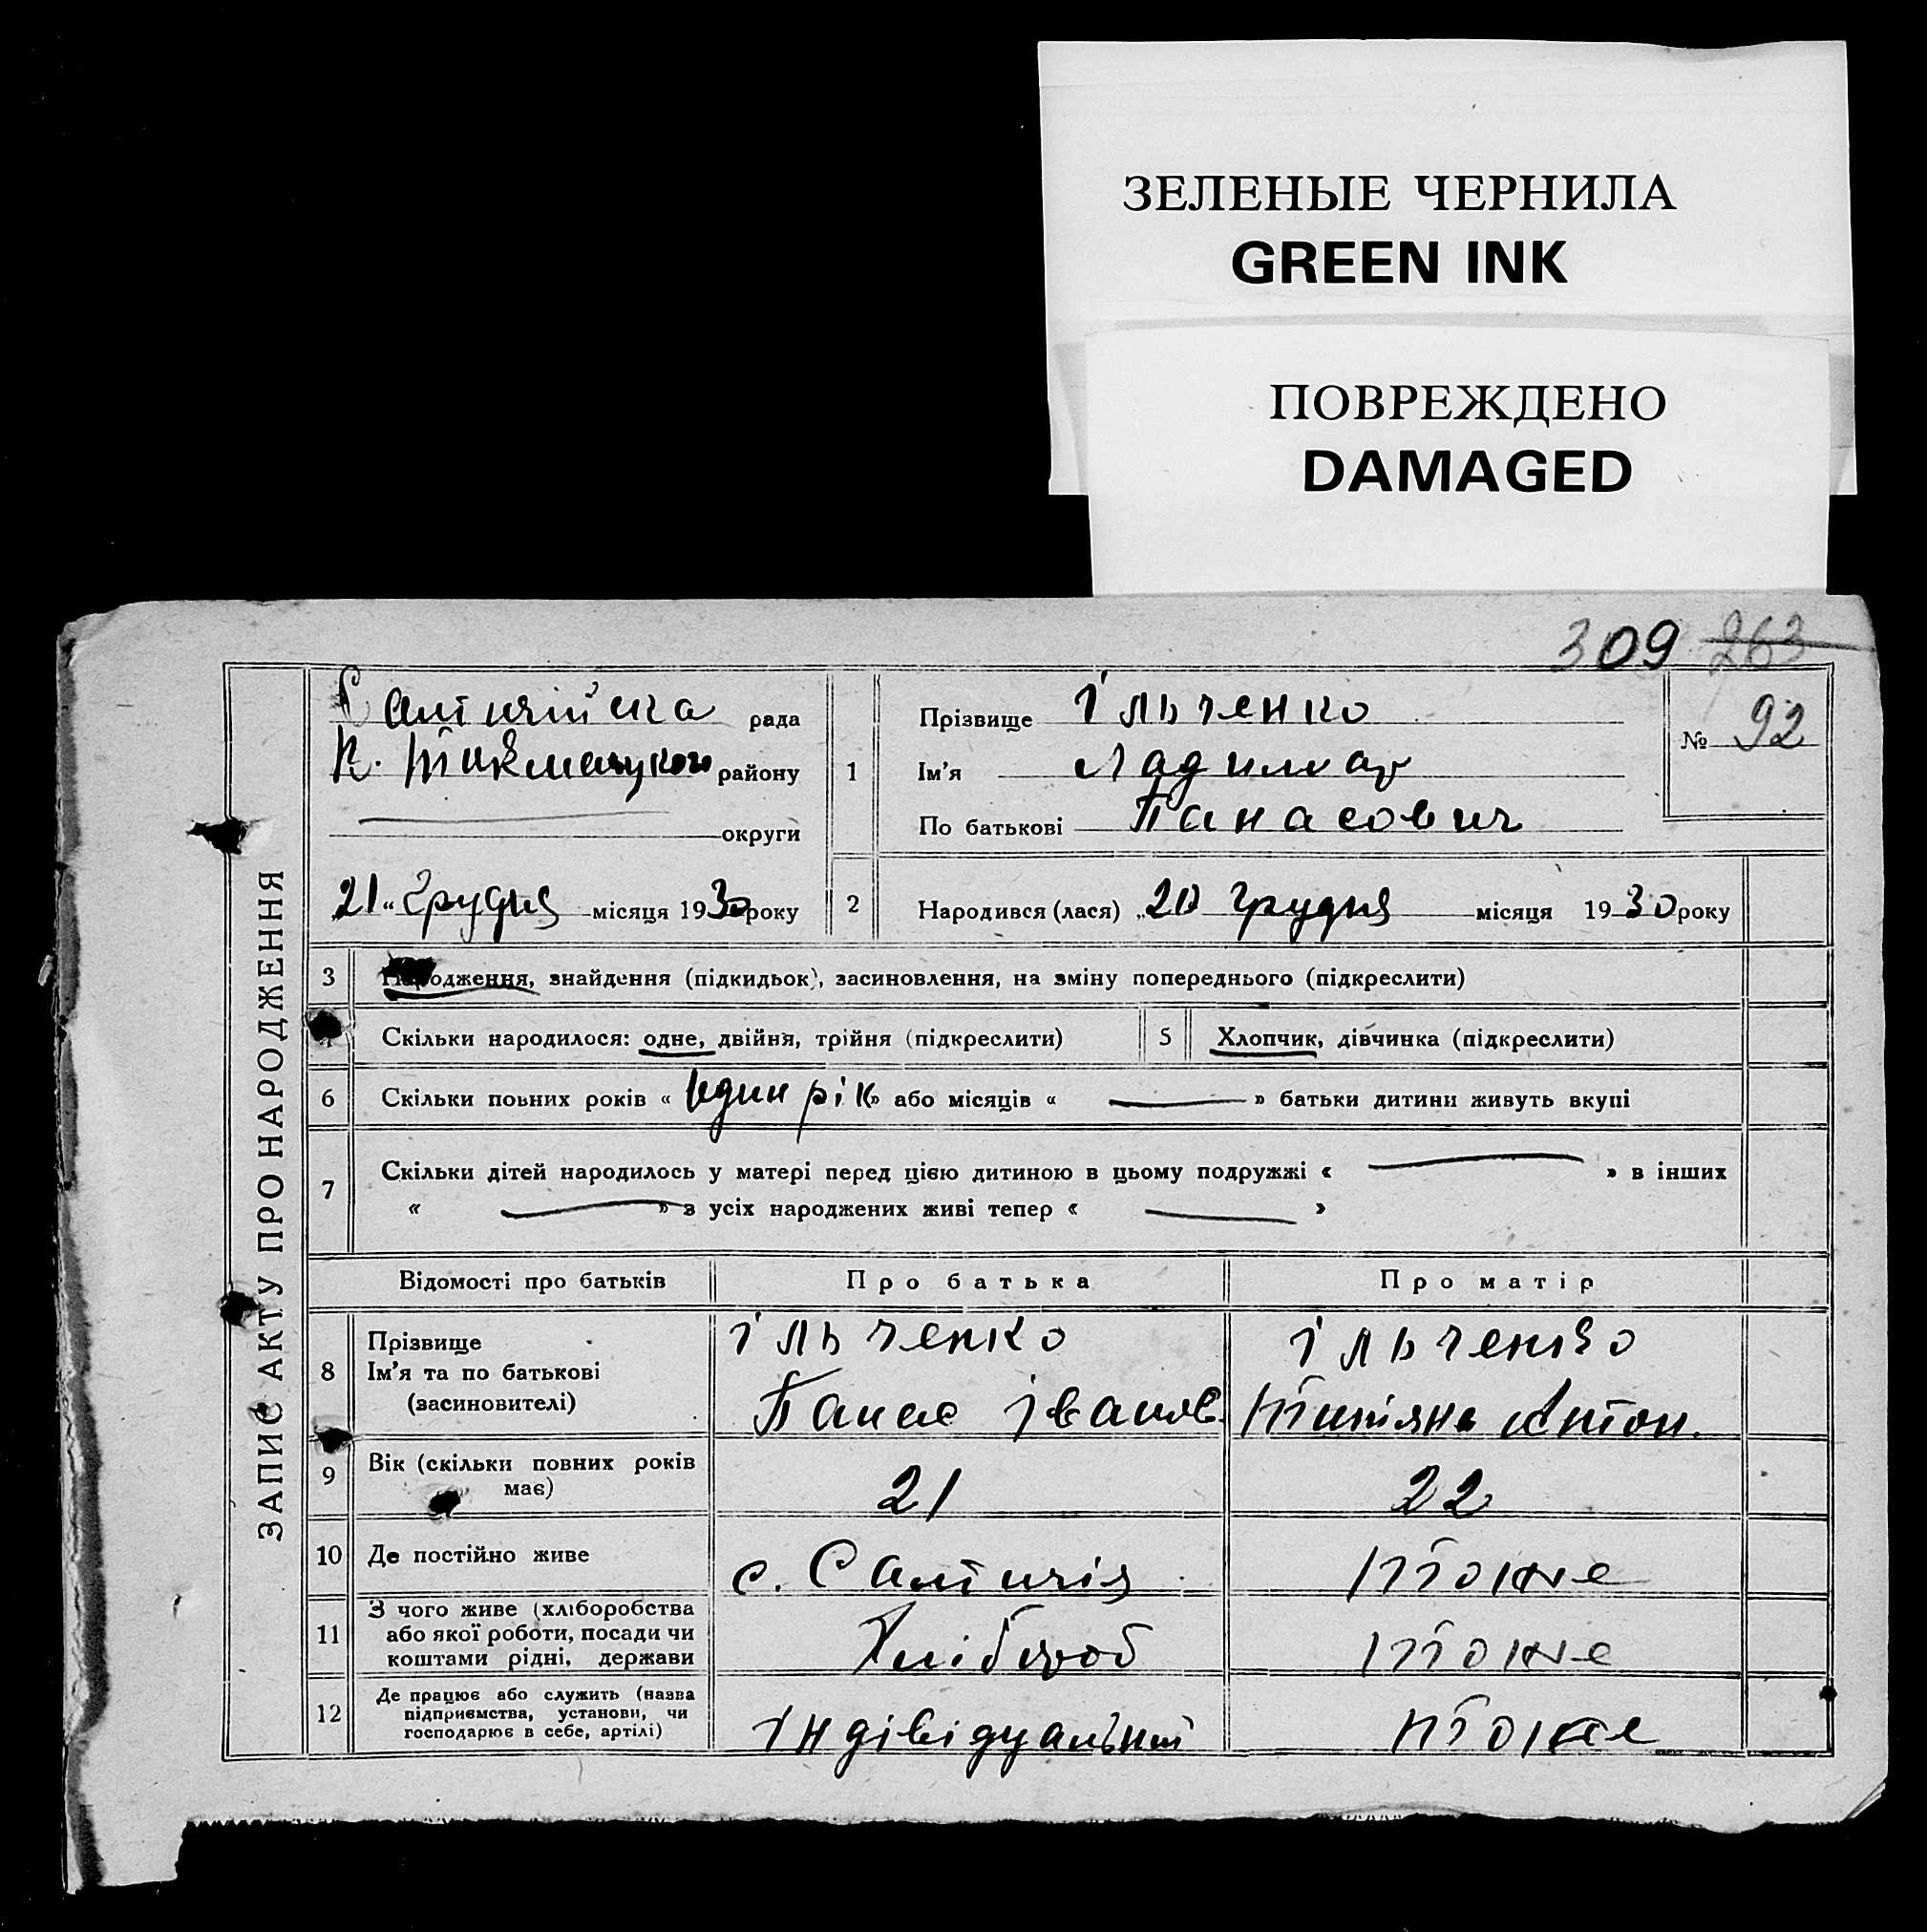 ЗЕЛЕНЫЕ ЧЕРНИЛА
GREEN INK
ПОВРЕЖДЕНО
DAMAGED
309 263
ЗАПИС АКТУ ПРО НАРОДЖЕННЯ
Салтичійська рада
району
округи
21 „ Грудня місяця 1930 року
1
Прізвище Ільченко
Ім'я Ладимар
По батькові Панасович
№ 92
2 Народився (лася) „20 Грудня місяця 1930 року
3 Народження, знайдення (підкидьок), засиновлення, на зміну попереднього (підкреслити)
4 Скільки народилося: одне, двійня, трійня (підкреслити) 5 Хлопчик, дівчинка (підкреслити)
6 Скільки повних років « один рік » або місяців « — » батьки дитини живуть вкупі
7 Скільки дітей народилось у матері перед цією дитиною в цьому подружжі « — » в інших
« — » з усіх народжених живі тепер « — »
Відомості про батьків Про батька Про матір
8 Прізвище Ільченко Ільченко
Ім'я та по батькові Панас Іванов. Титяна Антон.
(засиновителі)
9 Вік (скільки повних років має) 21 22
10 Де постійно живе с. Салтичія тоже
11 З чого живе (хліборобства
або якої роботи, посади чи
коштами рідні, держави Хлібороб тоже
12 Де працює або служить (назва
підприємства, установи, чи
господарює в себе, артілі) Індівідуальний тоже